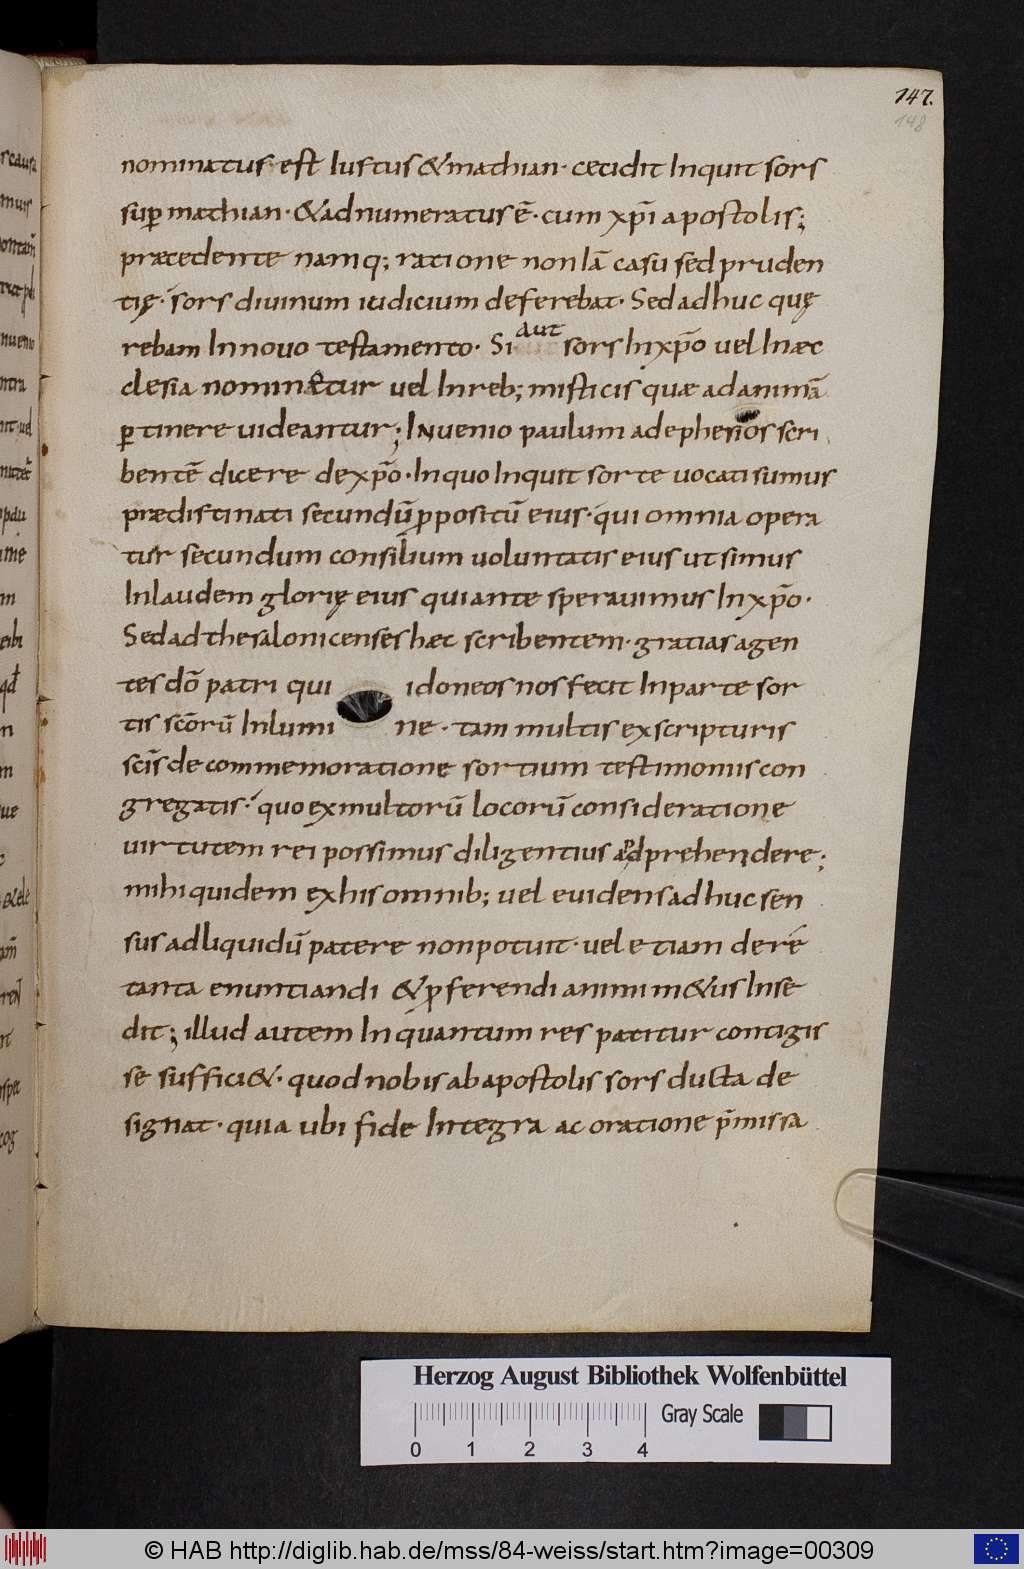 147.
148
nominatus est Iustus & mathian· cecidit Inquit sors
suꝑ mathian· & adnumeratus ē· cum xp̄i apostolis;
præcedente namq; ratione non Iā casu sed pruden
tię· sors diuinum iudicium deferebat· Sed adhuc quę
rebam In nouo testamento· Si aut sors In xp̄o uel In æc
clesia nominætur uel In reb; misticis quæ ad animā
ꝑtinere uideantur; Inuenio paulum ad ephesios scri
bentē dicere de xp̄o· In quo Inquit sorte uocati sumus
prædistinati secundū ꝓpositū eius· qui omnia opera
tur secundum consilium uoluntatis eius ut simus
In laudem glorię eius qui ante sperauimus In xp̄o·
Sed ad thesalonicenses hæc scribentem· gratias agen
tes dō patri qui idoneos nos fecit In parte sor
tis scōrū In lumine· tam multis ex scripturis
scīs de commemoratione sortium testimoniis con
gregatis· quo ex multorū locorū consideratione
uirtutem rei possimus diligentius adprehendere;
mihi quidem ex his omnib; uel euidens adhuc sen
sus ad liquidū patere non potuit· uel etiam de re
tanta enuntiandi & ꝓferendi animi m&us Inse
dit; illud autem In quantum res patitur contigis
se suffici&· quod nobis ab apostolis sors ducta de
signat· quia ubi fide Integra ac oratione p̄missa
Herzog August Bibliothek Wolfenbüttel
Gray Scale
0 1 2 3 4
© HAB http://diglib.hab.de/mss/84-weiss/start.htm?image=00309